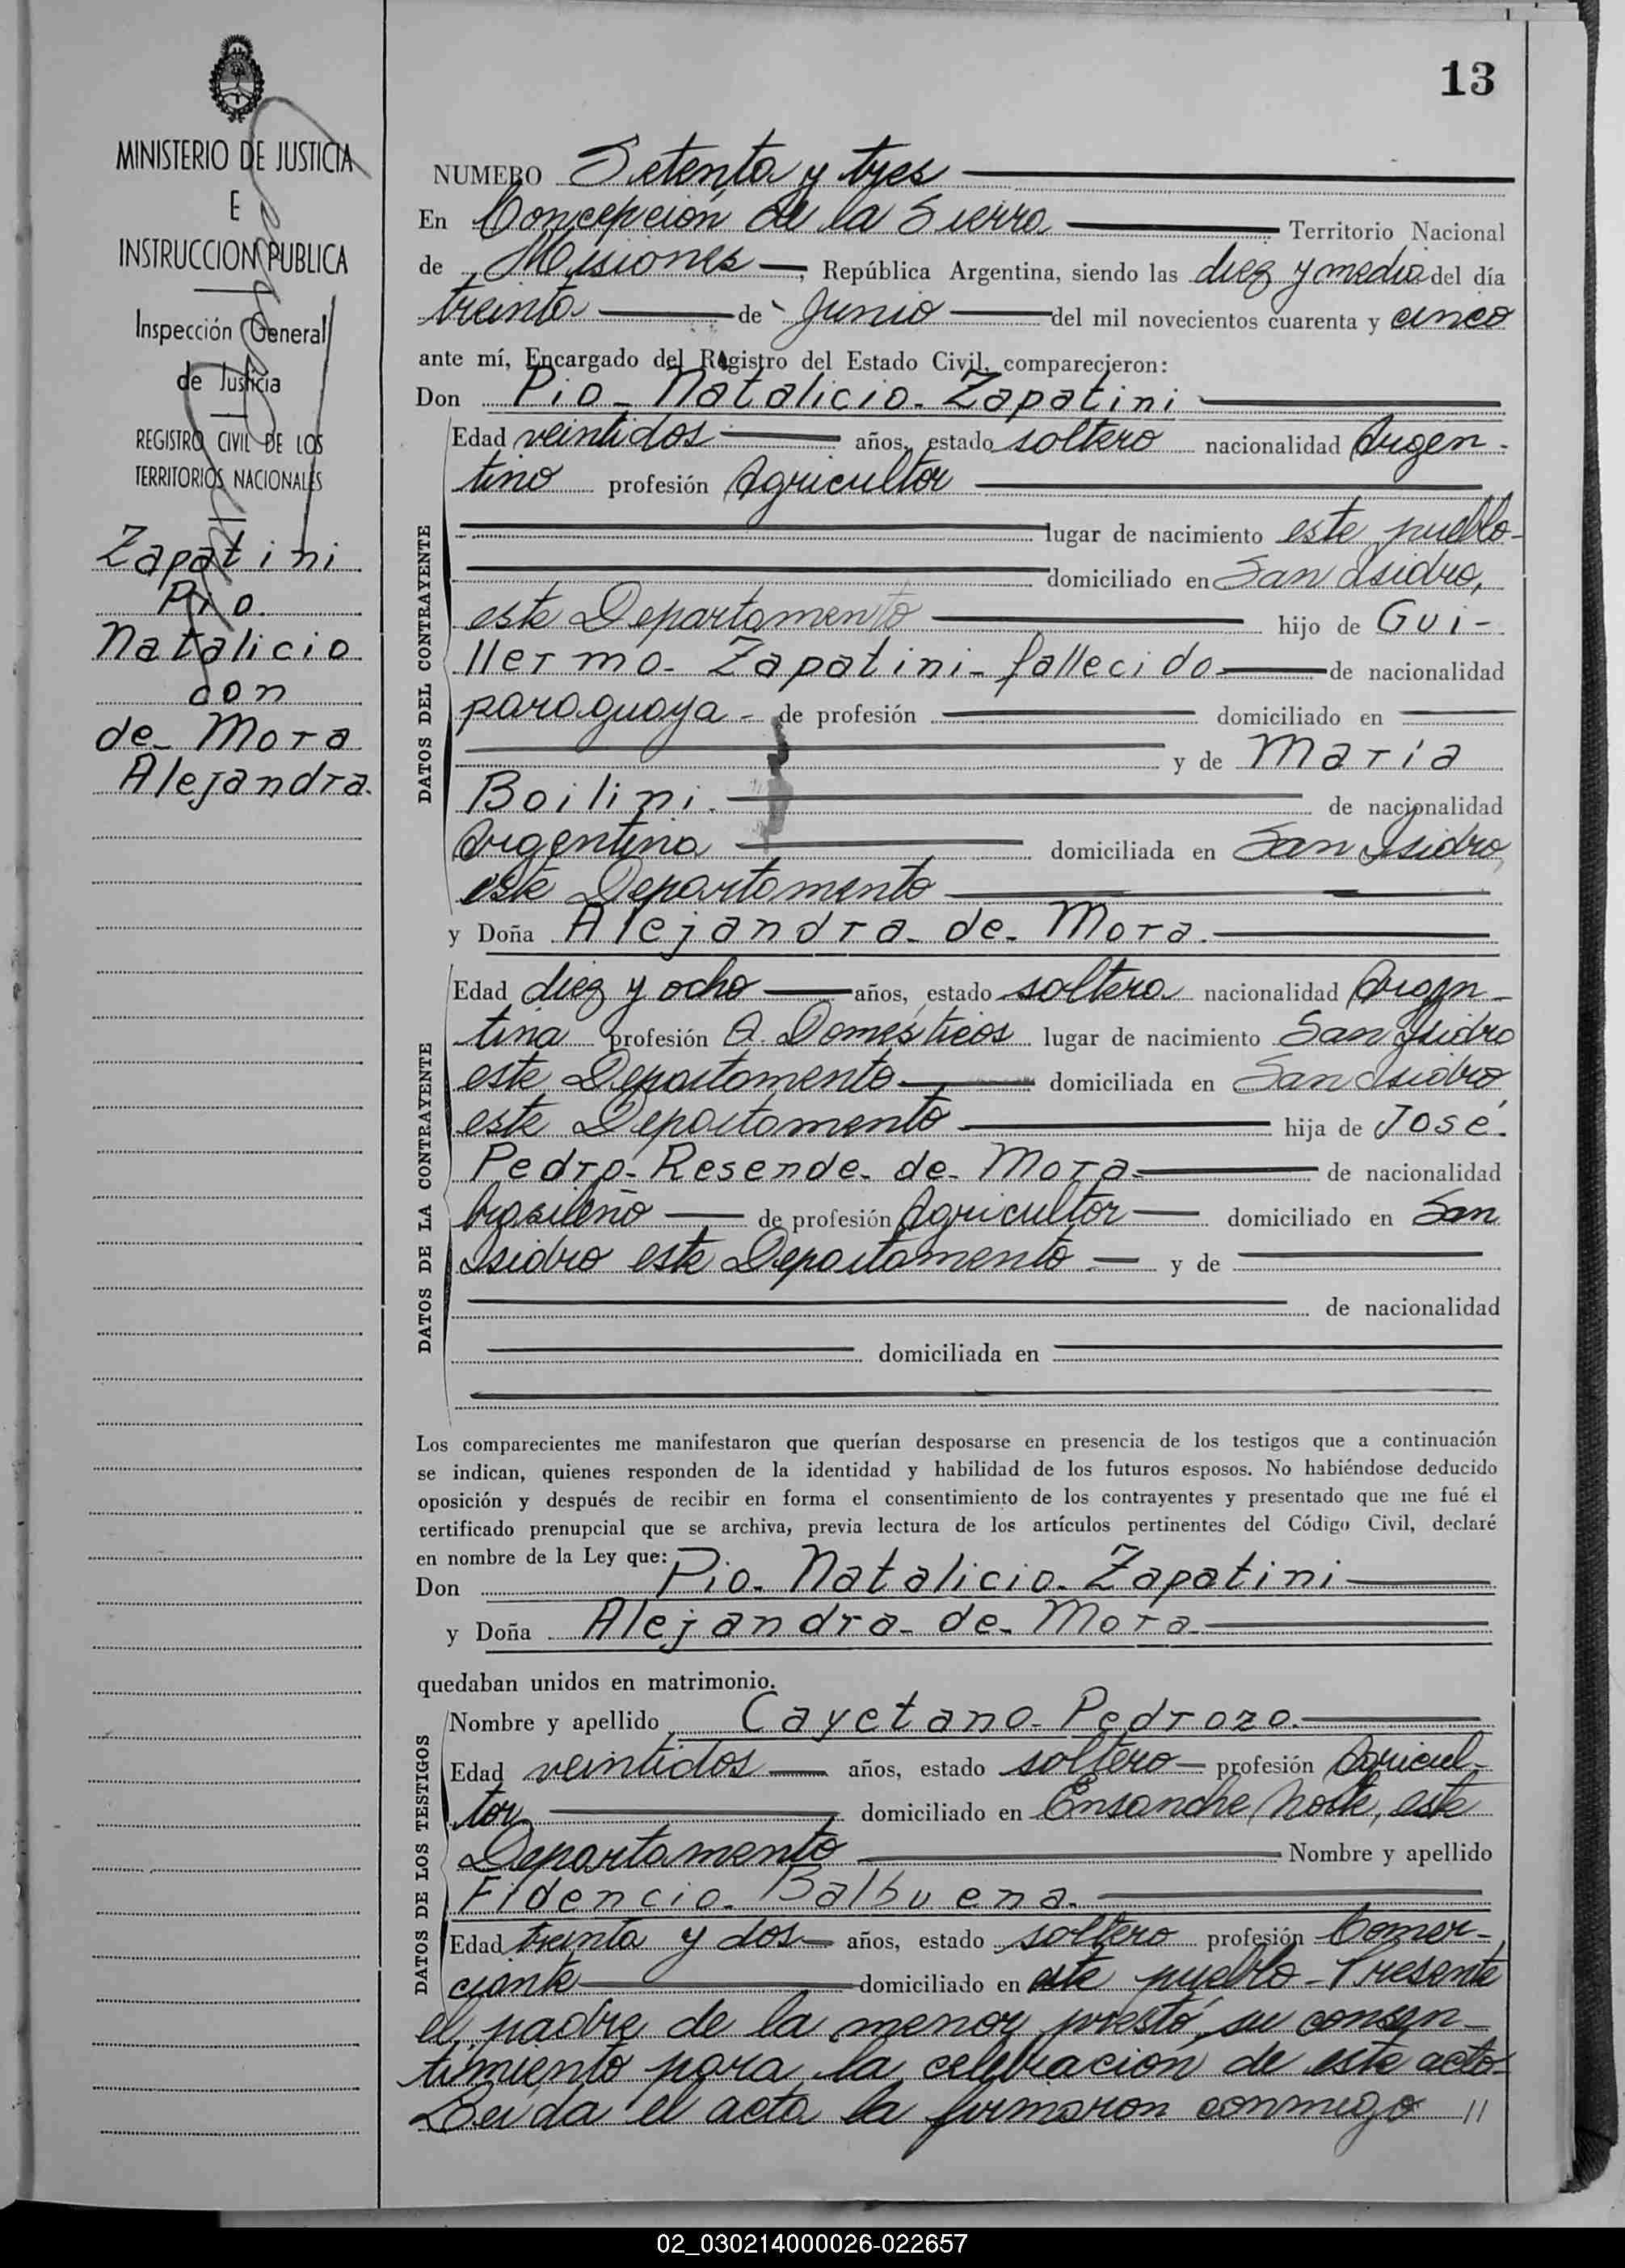 13
MINISTERIO DE JUSTICIA
E
INSTRUCCION PUBLICA
Inspección General
de Justicia
REGISTRO CIVIL DE LOS
TERRITORIOS NACIONALES
Zapatini
Pio
Natalicio
con
de Mora
Alejandra.
NUMERO Setenta y tres
En Concepción de la Sierra Territorio Nacional
de Misiones, República Argentina, siendo las diez y media del día
treinta de Junio del mil novecientos cuarenta y cinco
ante mí, Encargado del Registro del Estado Civil, comparecieron:
Don Pio Natalicio Zapatini
DATOS DEL CONTRAYENTE
Edad veintidos años, estado soltero nacionalidad Argen-
tino profesión Agricultor
lugar de nacimiento este pueblo
domiciliado en San Isidro,
este Departamento hijo de Gui-
llermo Zapatini fallecido de nacionalidad
paraguaya de profesión domiciliado en
y de Maria
Boilini. de nacionalidad
Argentina domiciliada en San Isidro,
este Departamento
y Doña Alejandra de Mora.
DATOS DE LA CONTRAYENTE
Edad diez y ocho años, estado soltera nacionalidad Argen-
tina profesión Q. Domésticos lugar de nacimiento San Isidro
este Departamento domiciliada en San Isidro
este Departamento hija de José
Pedro Resende de Mora de nacionalidad
brasileño de profesión Agricultor domiciliado en San
Isidro este Departamento y de
de nacionalidad
domiciliada en
Los comparecientes me manifestaron que querían desposarse en presencia de los testigos que a continuación
se indican, quienes responden de la identidad y habilidad de los futuros esposos. No habiéndose deducido
oposición y después de recibir en forma el consentimiento de los contrayentes y presentado que me fué el
certificado prenupcial que se archiva, previa lectura de los artículos pertinentes del Código Civil, declaré
en nombre de la Ley que:
Don Pio Natalicio Zapatini
y Doña Alejandra de Mora
quedaban unidos en matrimonio.
DATOS DE LOS TESTIGOS
Nombre y apellido Cayetano Pedrozo.
Edad veintidos años, estado soltero profesión Agricul-
tor domiciliado en Ensanche Norte, este
Departamento Nombre y apellido
Fidencio Balbuena.
Edad treinta y dos años, estado soltero profesión Comer-
ciante domiciliado en este pueblo - Presente
el padre de la menor prestó su consen-
timiento para la celebración de este acto-
Leida el acta la firmaron conmigo //
02_030214000026-022657